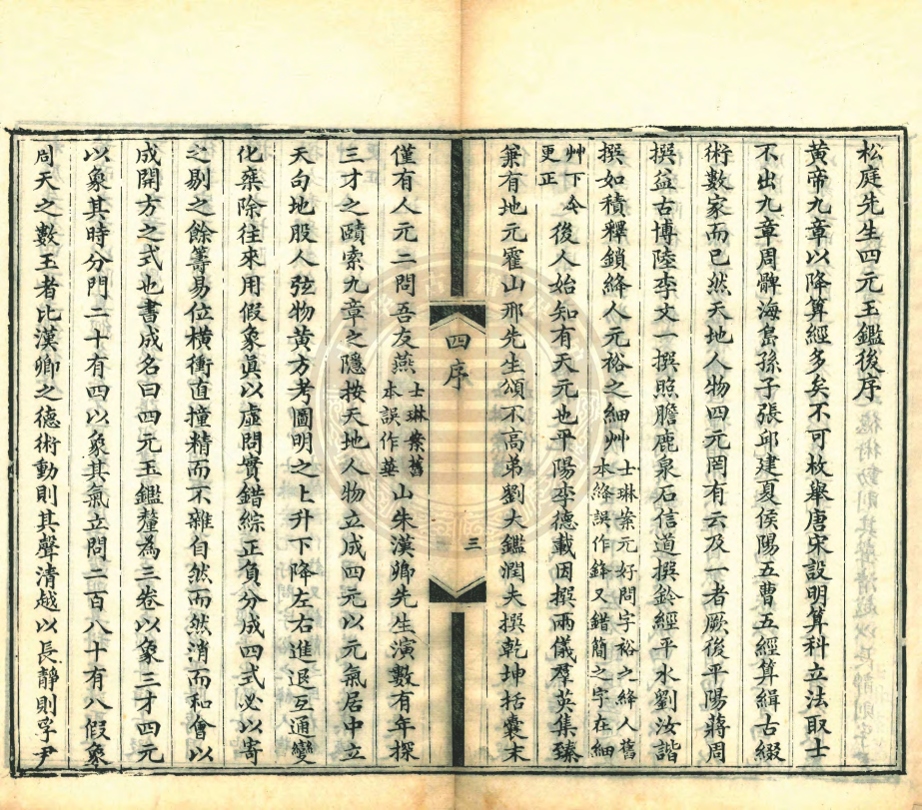 松庭先生四元玉鑑後序
黃帝九章以降算經多矣不可枚舉唐宋設明算科立法取士
不出九章周髀海島孫子張邱建夏侯陽五曹五經算緝古綴
術數家而已然天地人物四元罔有云及一者厥後平陽蔣周
撰益古博陸李文一撰照膽鹿泉石信道撰鈐經平水劉汝諧
撰如積釋鎖絳人元裕之細艸士琳案元好問字裕之絳人舊
本絳誤作鋒又錯簡之字在細
艸下今
更正後人始知有天元也平陽李德載因撰兩儀羣英集臻
兼有地元霍山邢先生頌不高弟劉大鑑潤夫撰乾坤括囊末
四序
三
僅有人元二問吾友燕士琳案舊
本誤作華山朱漢卿先生演數有年探
三才之賾索九章之隱按天地人物立成四元以元氣居中立
天句地股人弦物黃方考圖明之上升下降左右進退互通變
化乘除往來用假象眞以虛問實錯綜正負分成四式必以寄
之剔之餘籌易位橫衝直撞精而不雜自然而然消而和會以
成開方之式也書成名曰四元玉鑑釐為三卷以象三才四元
以象其時分門二十有四以象其氣立問二百八十有八假象
周天之數王者比漢卿之德術動則其聲清越以長靜則孚尹